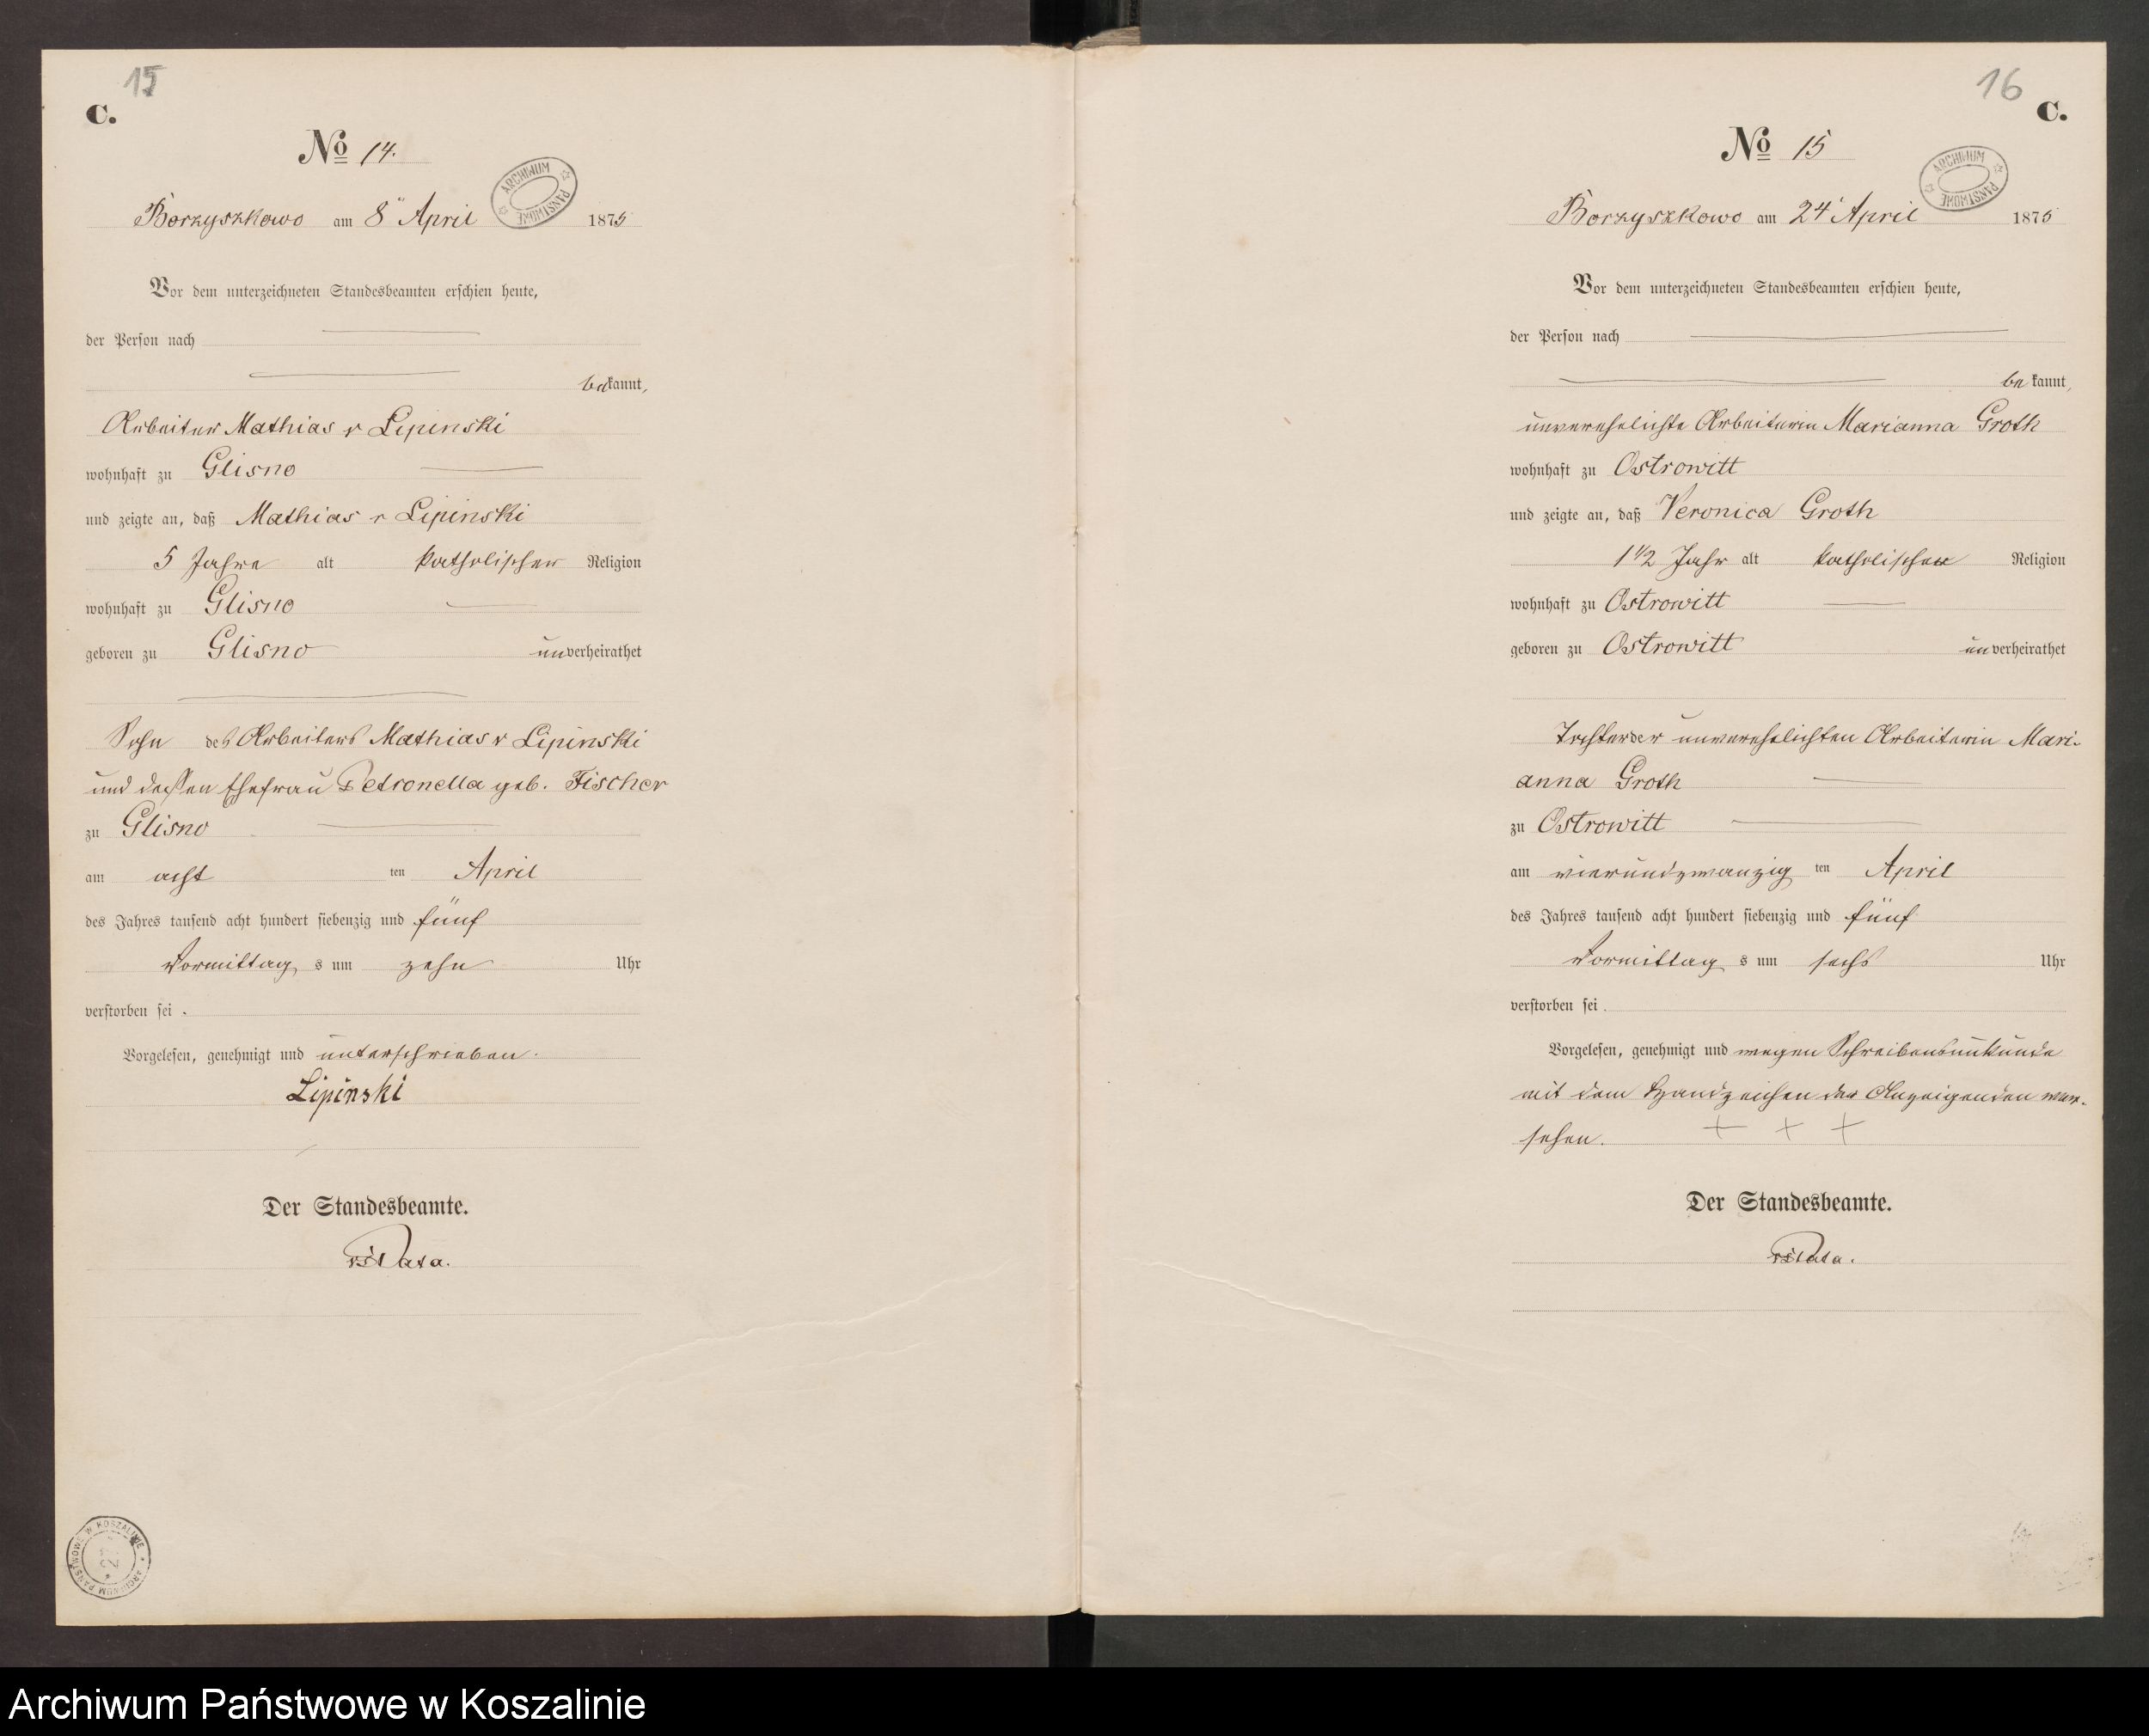 15
C.
No 14.
ARCHIWUM PAŃSTWOWE
Borzyszkowo am 8ten April 1875
Vor dem unterzeichneten Standesbeamten erschien heute,
der Person nach
bekannt,
Arbeiter Mathias v Lipinski
wohnhaft zu Glisno
und zeigte an, daß Mathias v Lipinski
5 Jahre alt katholischer Religion
wohnhaft zu Glisno
geboren zu Glisno unverheirathet
Sohn des Arbeiters Mathias v Lipinski
und dessen Ehefrau Petronella geb. Fischer
zu Glisno
am acht ten April
des Jahres tausend acht hundert siebenzig und fünf
Vormittag s um zehn Uhr
verstorben sei.
Vorgelesen, genehmigt und unterschrieben.
Lipinski
Der Standesbeamte.
ARCHIWUM PAŃSTWOWE W KOSZALINIE
16
C.
No 15
ARCHIWUM PAŃSTWOWE
Borzyszkowo am 24t April 1875
Vor dem unterzeichneten Standesbeamten erschien heute,
der Person nach
bekannt,
unverehelichte Arbeiterin Marianna Groth
wohnhaft zu Ostrowitt
und zeigte an, daß Veronica Groth
1 1/2 Jahr alt katholischer Religion
wohnhaft zu Ostrowitt
geboren zu Ostrowitt unverheirathet
Tochter der unverehelichten Arbeiterin Mari-
anna Groth
zu Ostrowitt
am vierundzwanzig ten April
des Jahres tausend acht hundert siebenzig und fünf
Vormittag s um sechs Uhr
verstorben sei.
Vorgelesen, genehmigt und wegen Schreibensunkunde
mit dem Handzeichen der Anzeigenden ver-
sehen. + + +
Der Standesbeamte.
Archiwum Państwowe w Koszalinie